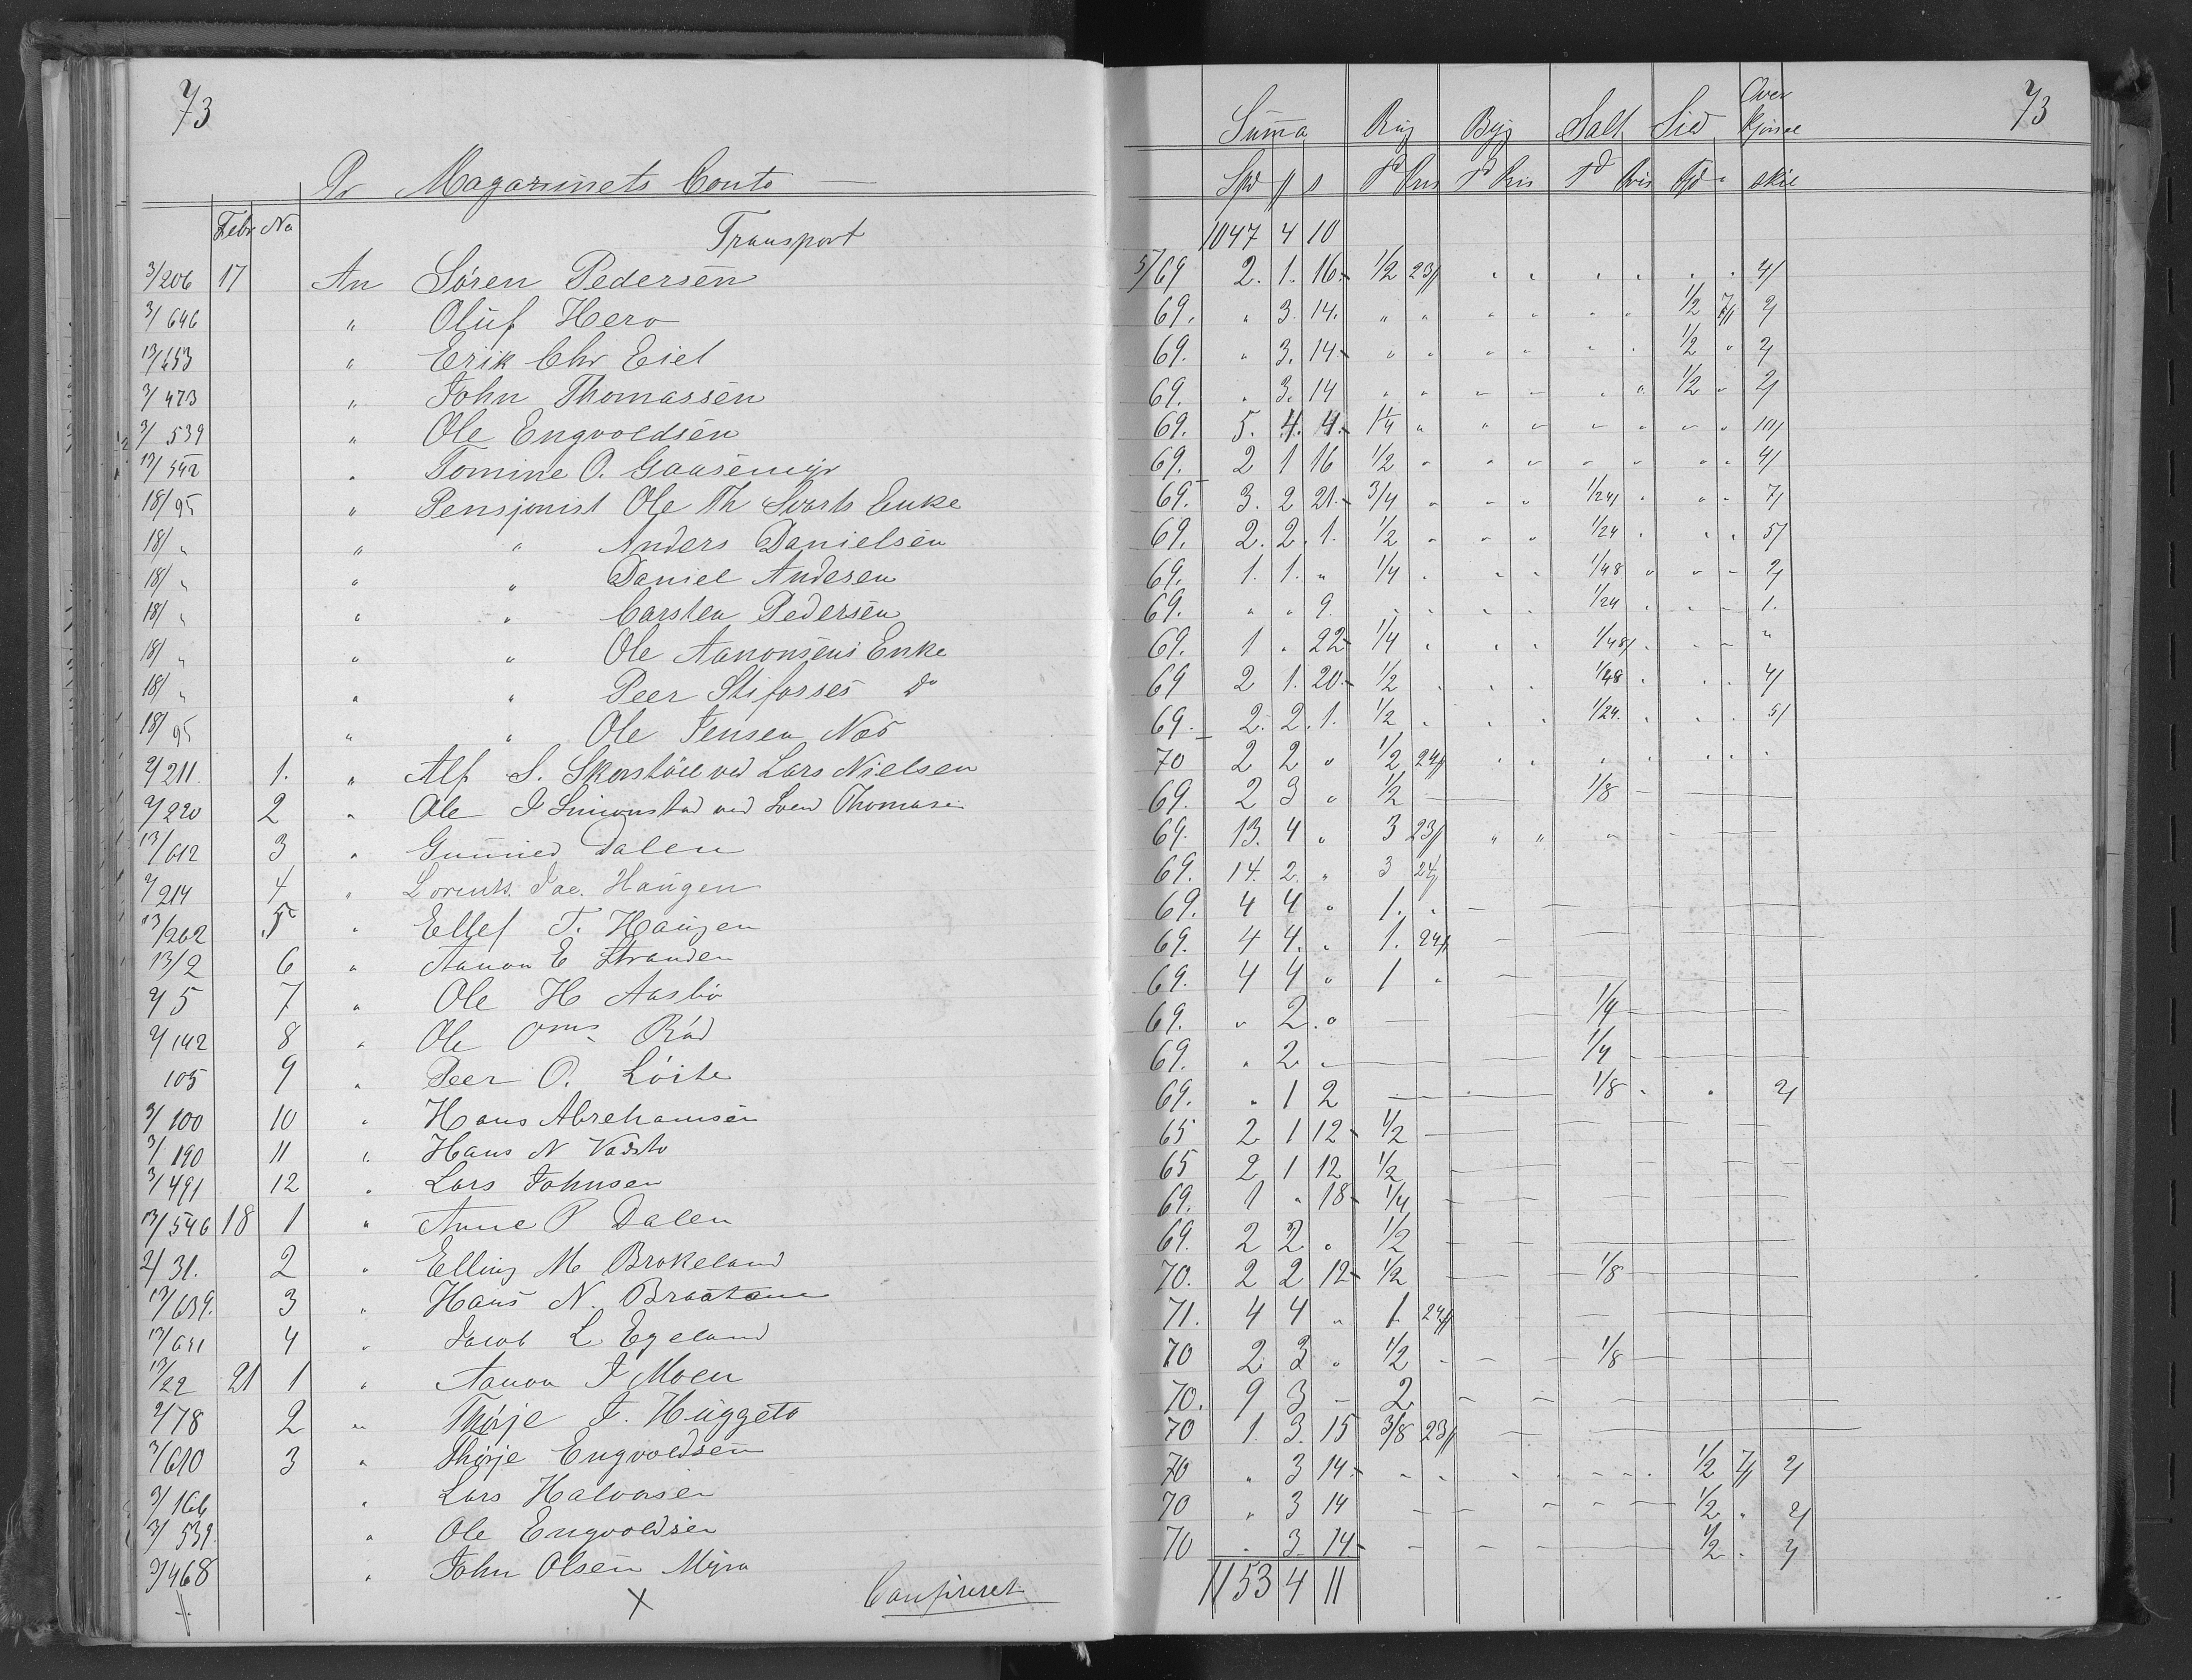 73
Pr Magazinets Conto
Febr No
Transport
3/206 17 An Sören Pedersen
3/646 " Oluf Hero
13/653 " Erik Chr Eiet
3/473 " John Thomassen
3/539 " Ole Engvoldsen
13/542 " Tomine O. Gaasemyr
18/95 " Pensjonist Ole Th Svarts Enke
18/ " " " Anders Danielsen
18/ " " " Daniel Andersen
18/ " " " Carsten Pedersen
18/ " " " Ole Aanonsens Enke
18/ " " " Peer Stifosses do
18/95 " " Ole Jensen Næs
2/211 1. " Alf S. Skorstöel ved Lars Nielsen
2/220 2 " Ole J Simonstad ved Sven Thomasen
13/612 3 " Gunnild Dalen
2/214 4 " Lorents Jac. Haugen
13/202 5 " Ellef T. Haugen
13/2 6 " Aanon E Stranden
2/5 7 " Ole H Aasbö
2/142 8 " Ole Oms Röd
105 9 " Peer O. Löite
3/100 10 " Hans Abrehamsen
3/190 11 " Hans N
3/491 12 " Lars Johnsen
13/546 18 1 " Anne P Dalen
2/31. 2 " Elling M Brokeland
13/639. 3 " Hans N. Braatane
13/651 4 " Jacob L Egeland
13/22 21 1 " Aanon J Moen
2/78 2 " Thorje J. Huggeto
3/610 3 " Thorje Engvoldsen
3/166 " Lars Halvorsen
3/539. " Ole Engvoldsen
3/468 " John Olsen Myra
Confereret
73
Summa Rug Byg Salt Sild Over kjörsel
Spd ß s Td Pris Td Pris Td Pris Fjd " skil
1047 4 10
5/69 2. 1. 16 1/2 23/ " " " " " " 4/
69. " 3. 14. " " " " " " 1/2 7/ 2/
69. " 3. 14 " " " " " " 1/2 " 2/
69. " 3. 14 " " " " " " 1/2 " 2/
69. 5. 4. 4. 1 1/4 " " " " " " " 10/
69. 2 1 16 1/2 " " " " " " " 4/
69. 3. 2 21. 3/4 " " " 1/24 " " " 7/
69. 2. 2. 1. 1/2 " " " 1/24 " " " 5/
69. 1. 1. " 1/4 " " " 1/48 " " " 2/
69. " " 9. " " " " 1/24 " " " 1.
69. 1 " 22 1/4 " " " 1/48 " " " "
69 2 1. 20. 1/2 " " " 1/48 " " " 4/
69. 2. 2. 1. 1/2 " " " 1/24. " " " 5/
70 2 2 " 1/2 24/ " " " " " " "
69. 2 3 " 1/2 1/8
69. 13. 4 " 3 23/ " " "
69. 14. 2. " 3 24/
69. 4 4 " 1. "
69. 4 4. " 1. 24/
69. 4 4 " 1 "
69. " 2. " 1/4
69. " 2. " 1/4
69. " 1 2 1/8 " " 2/
65 2 1 12 1/2
65 2 1 12 1/2
69. 1 " 18 1/4
69. 2 2 " 1/2
70. 2 2 12 1/2 1/8
71. 4 4 " 1. 24/
70 2 3 " 1/2 1/8
70. 9 3 - 2
70 1. 3. 15 3/8 23/
70 " 3 14. 1/2 7/ 2/
70 " 3 14 1/2 " 2/
70 " 3. 14 1/2 " 2/
1153 4 11